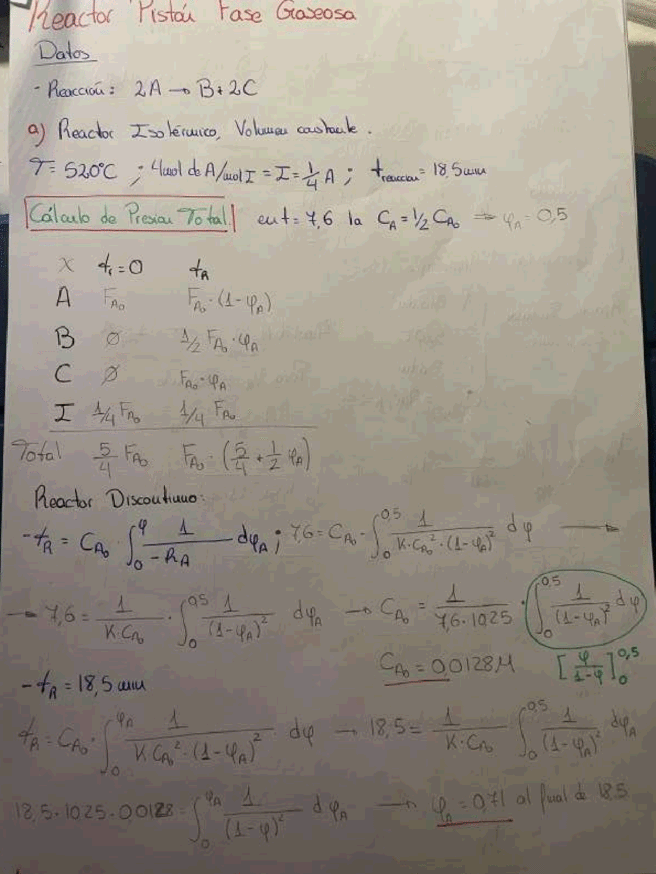 Reactor Pistón Fase Gaseosa
Datos
- Reacción: 2A → B + 2C
a) Reactor Isotérmico, Volumen constante.
T = 520°C ; 4mol de A/mol I = I = 1/4 A ; t reaccion = 18,5 min
Cálculo de Presion Total en t = 7,6 la C_A = 1/2 C_A₀ ⇒ φ_A = 0,5
X t_i = 0 t_R
A F_A₀ F_A₀ · (1-φ_A)
B ∅ 1/2 F_A₀ · φ_A
C ∅ F_A₀ · φ_A
I 1/4 F_A₀ 1/4 F_A₀
Total 5/4 F_A₀ F_A₀ · (5/4 + 1/2 φ_A)
Reactor Discontinuo:
- t_R = C_A₀ · ∫₀^φ 1/(-R_A) dφ_A ; 7,6 = C_A₀ · ∫₀^0,5 1/(K·C_A₀²·(1-φ_A)²) dφ →
→ 7,6 = 1/(K·C_A₀) · ∫₀^0,5 1/(1-φ_A)² dφ_A → C_A₀ = 1/(7,6·1025) · ∫₀^0,5 1/(1-φ_A)² dφ
C_A₀ = 0,0128 M [φ/(1-φ)]₀^0,5
- t_R = 18,5 min
t_R = C_A₀ · ∫₀^φ_A 1/(K·C_A₀²·(1-φ_A)²) dφ → 18,5 = 1/(K·C_A₀) ∫₀^0,5 1/(1-φ_A)² dφ_A
18,5 · 1025 · 0,0128 = ∫₀^φ_A 1/(1-φ)² dφ_A → φ_A = 0,71 al final de 18,5